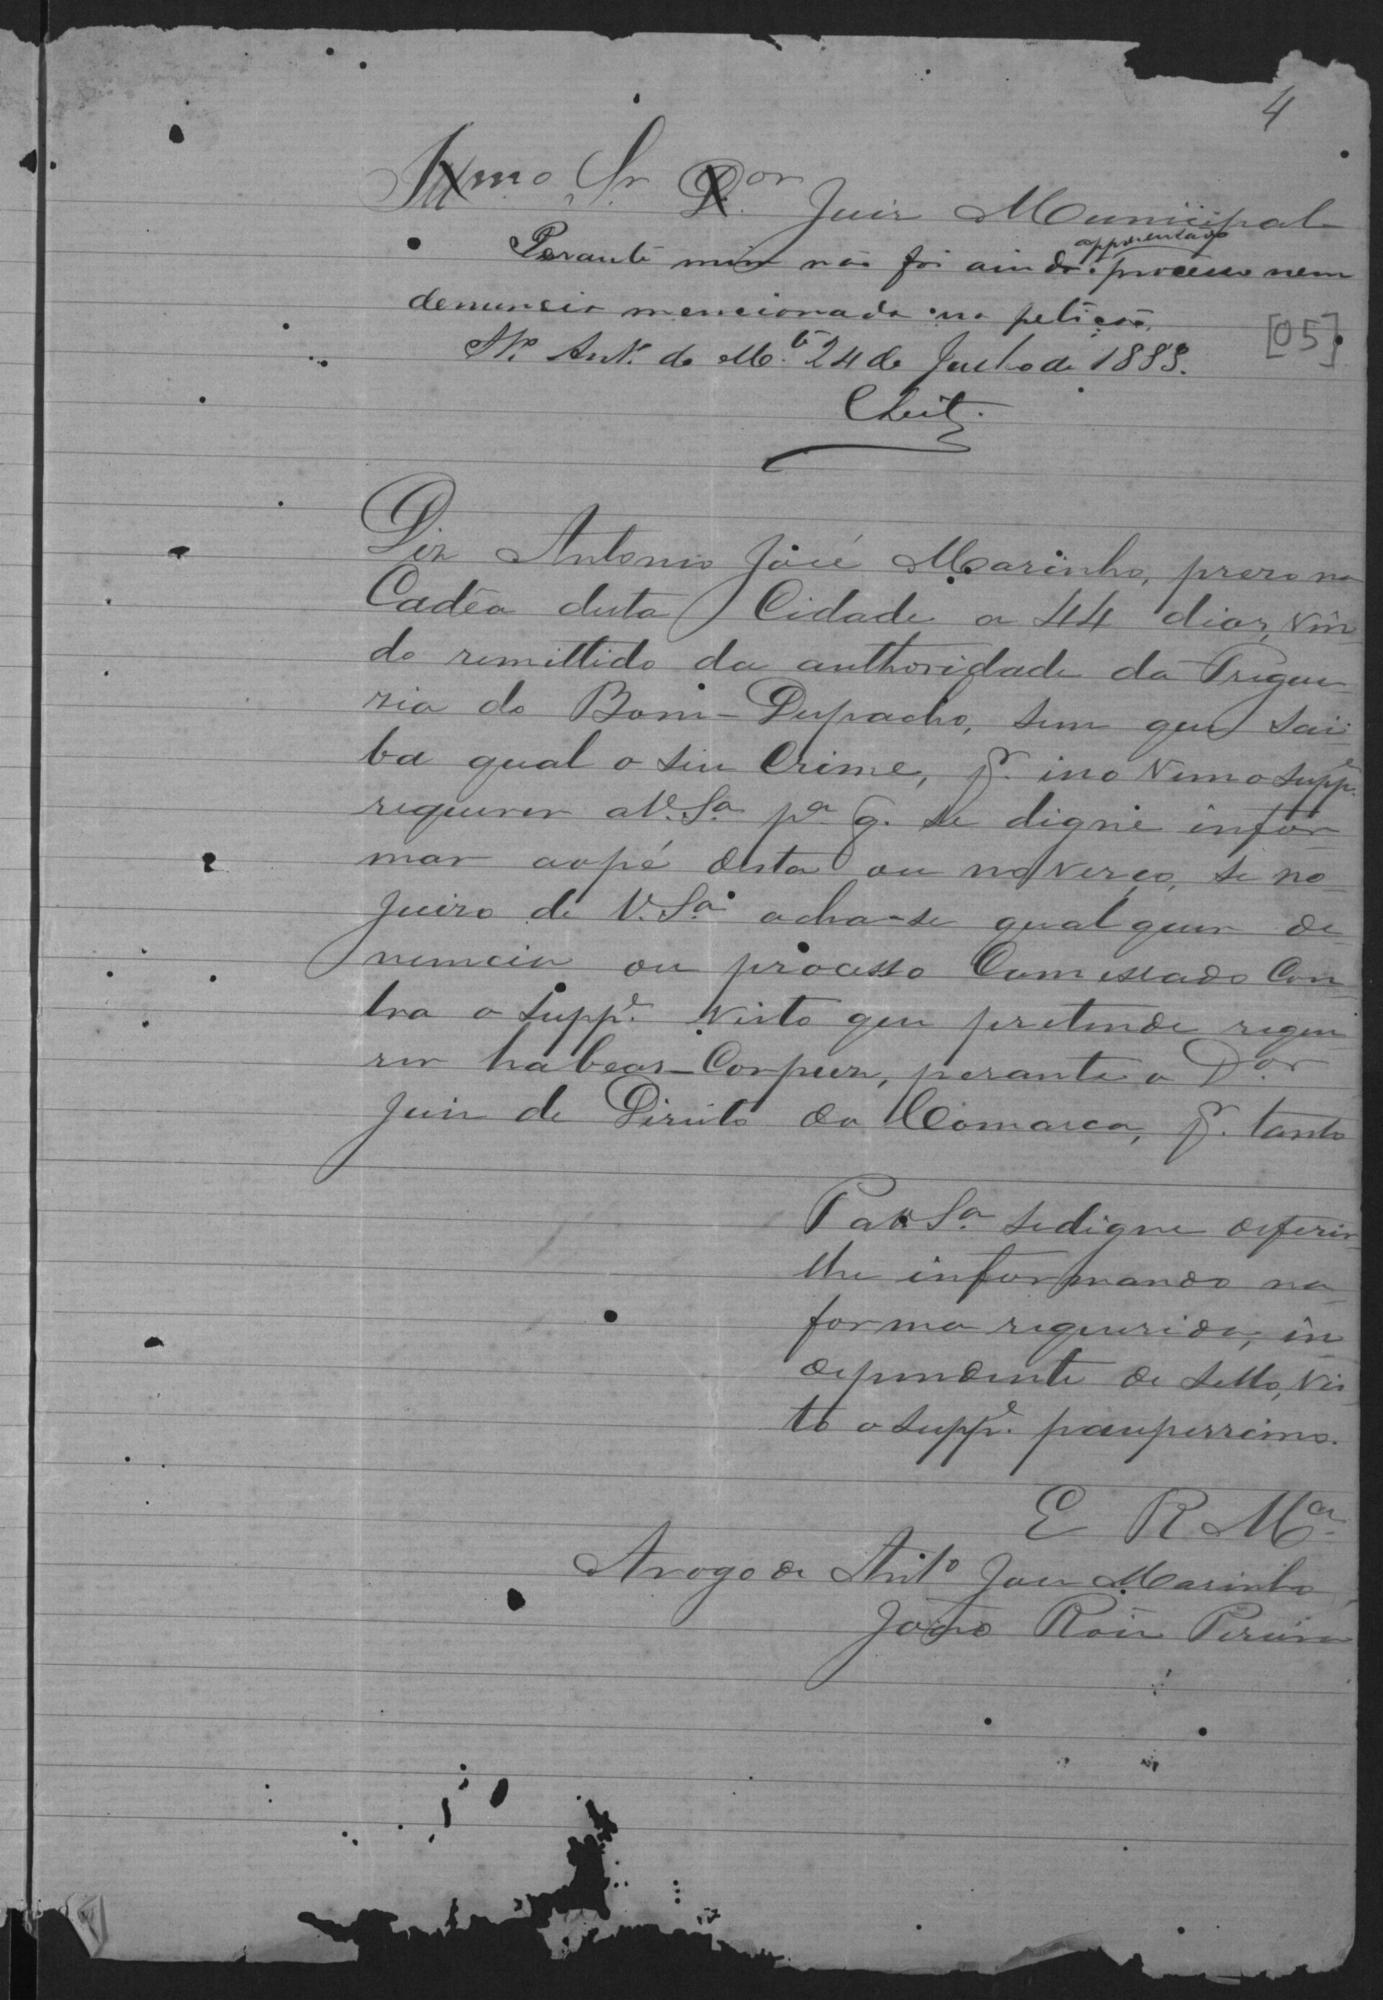 4
Illmo Sr. Dor Juiz Municipal
Perante mim não foi ainda appresentado processo nem
denuncia mencionada na petição.
Sto Ant. do Me. 24 de Julho de 1889.
[05]
Diz Antonio José Marinho, prezo na
Cadêa desta Cidade a 44 dias, vin
do remittido da authoridade da Fregue
zia do Bom-Despacho, sem que sai
ba qual o seu Crime, pr. iço vem o Suppe.
requerer a V. Sa pa q. se digne infor
mar aopé desta ou no verço, se no
Juizo de V. Sa acha-se qualquer de
nuncia ou processo Comessado Con
tra o Suppe. visto que pretende reque
rer habeas-Corpus, perante o Dor
Juiz de Direito da Comarca, pr. tanto
P a V. Sa se digne deferir
lhe informando na
forma requerida, in
dependente de Sello, vis
to o Suppe. pauperrimo.
E R Mce
Arogo de Anto José Marinho
João Roiz Pereira